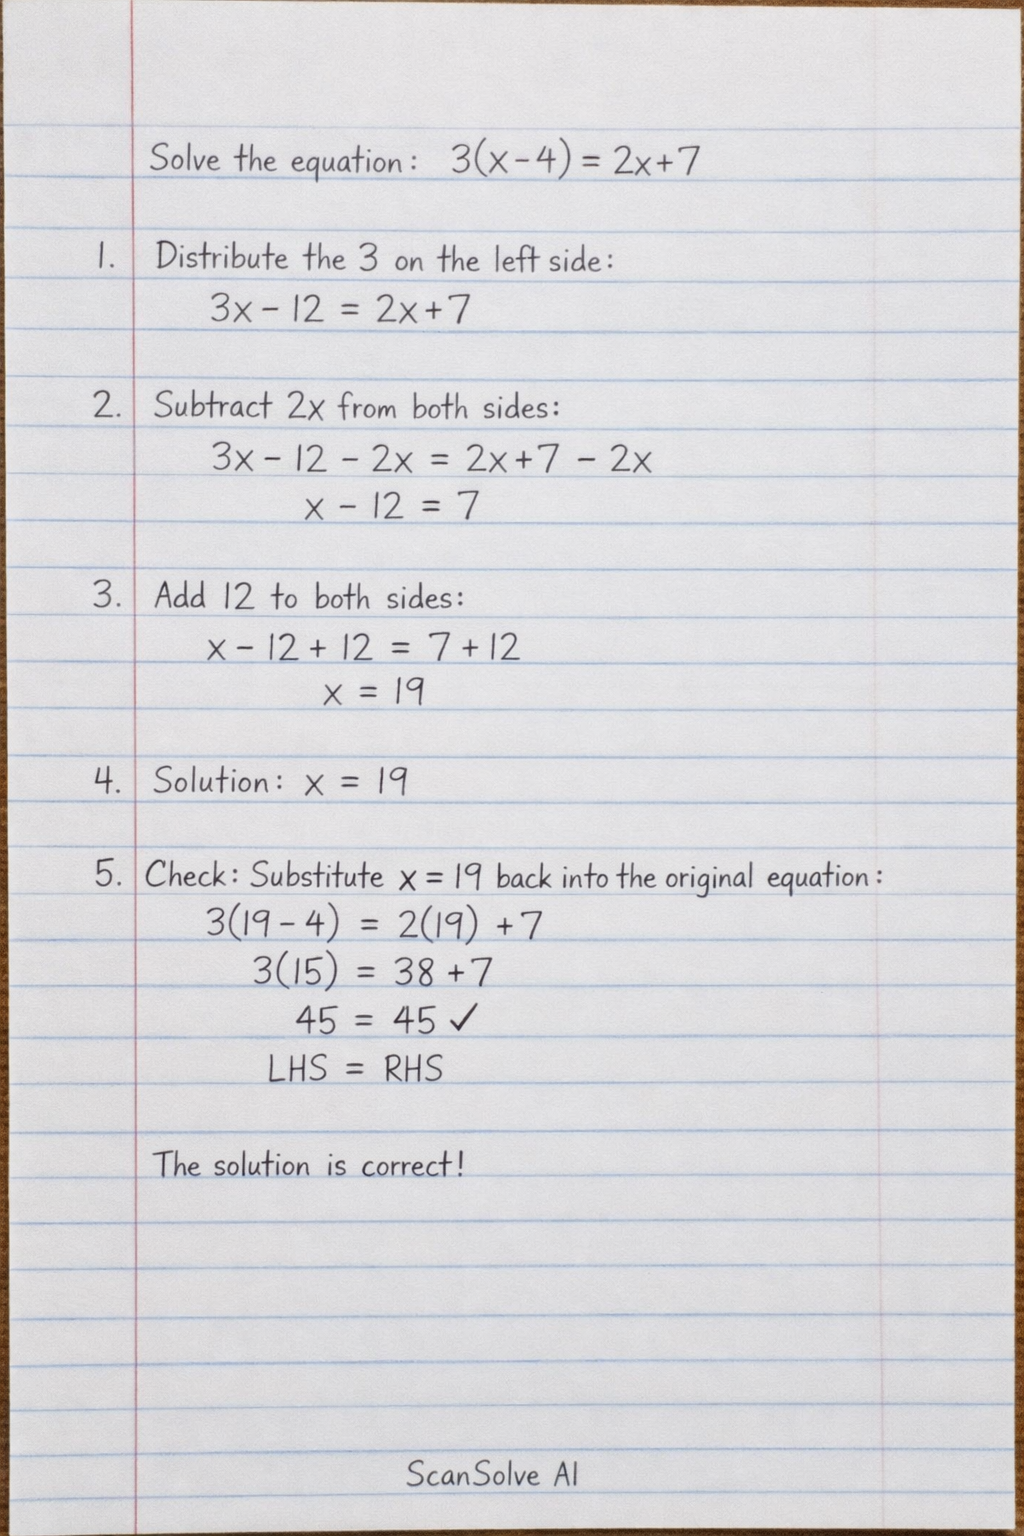 Solve the equation: 3(x-4) = 2x+7
1. Distribute the 3 on the left side:
3x - 12 = 2x+7
2. Subtract 2x from both sides:
3x - 12 - 2x = 2x+7 - 2x
x - 12 = 7
3. Add 12 to both sides:
x - 12 + 12 = 7 + 12
x = 19
4. Solution: x = 19
5. Check: Substitute x = 19 back into the original equation:
3(19 - 4) = 2(19) + 7
3(15) = 38 + 7
45 = 45 ✓
LHS = RHS
The solution is correct!
ScanSolve AI